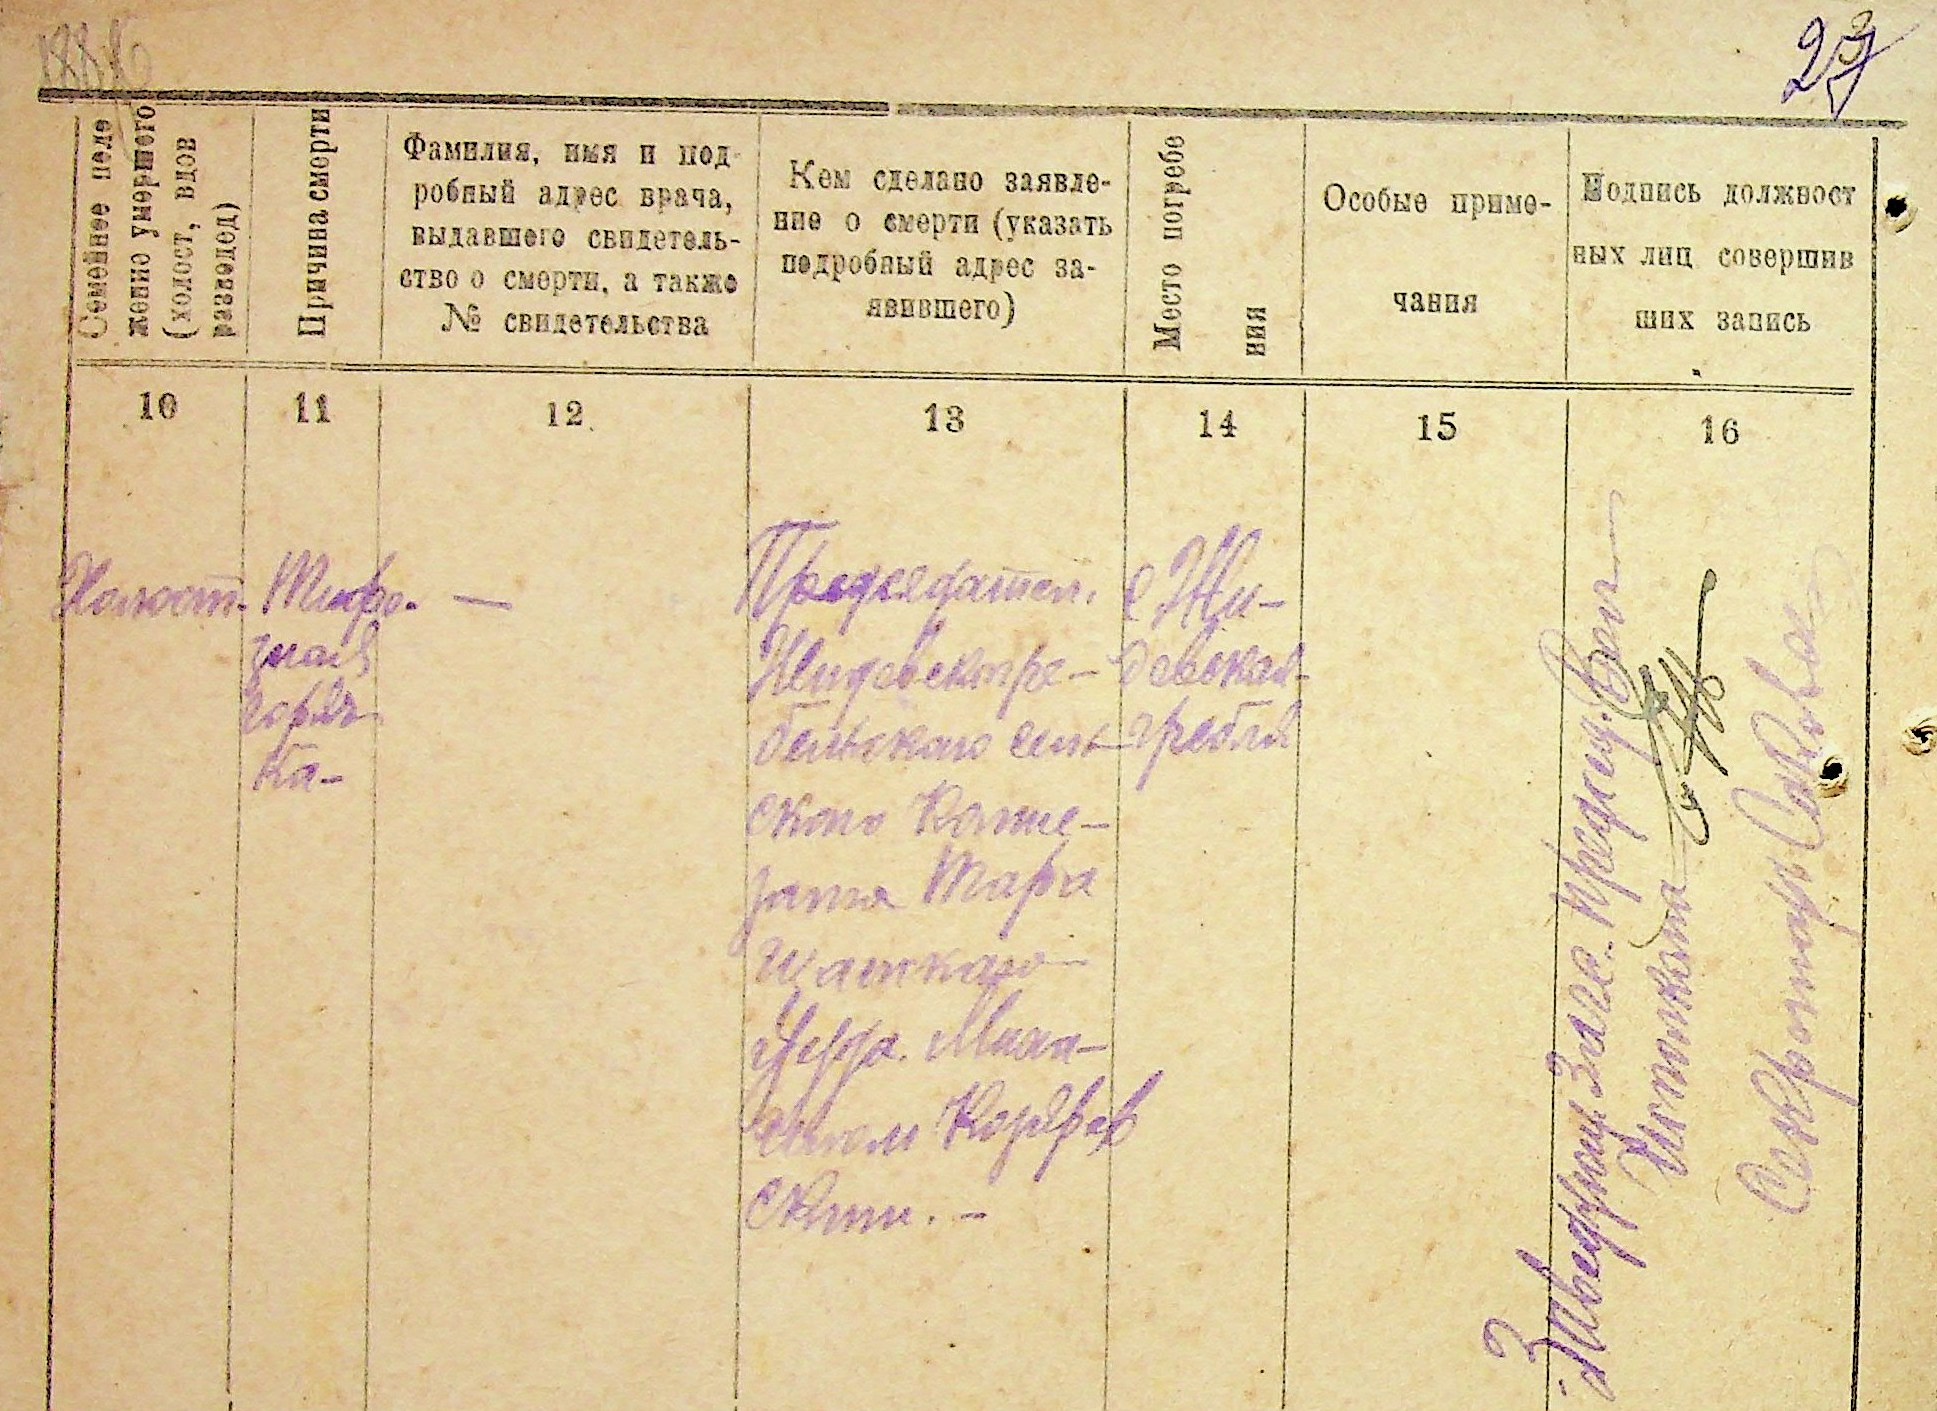 23
Семейное поло
жение умершего
(холост, вдов
разведед)
Причина смерти
Фамилия, имя и под-
робный адрес врача,
выдавшего свидетель-
ство о смерти, а также
№ свидетельства
Кем сделано заявле-
ние о смерти (указать
подробный адрес за-
явившего)
Место погребе
ния
Особые приме-
чания
Подпись должност
ных лиц совершив
ших запись
10
11
12
13
14
15
16
Холост.
Тифо.
зная
горяч
ка-
—
Председател.
Жидовскогре-
бельскаго сель-
скаго Комис-
Тара
щанскаго
Уезда.
ским
с Жи-
довская-
гребля
Председ.
Исполкома
Секретарь